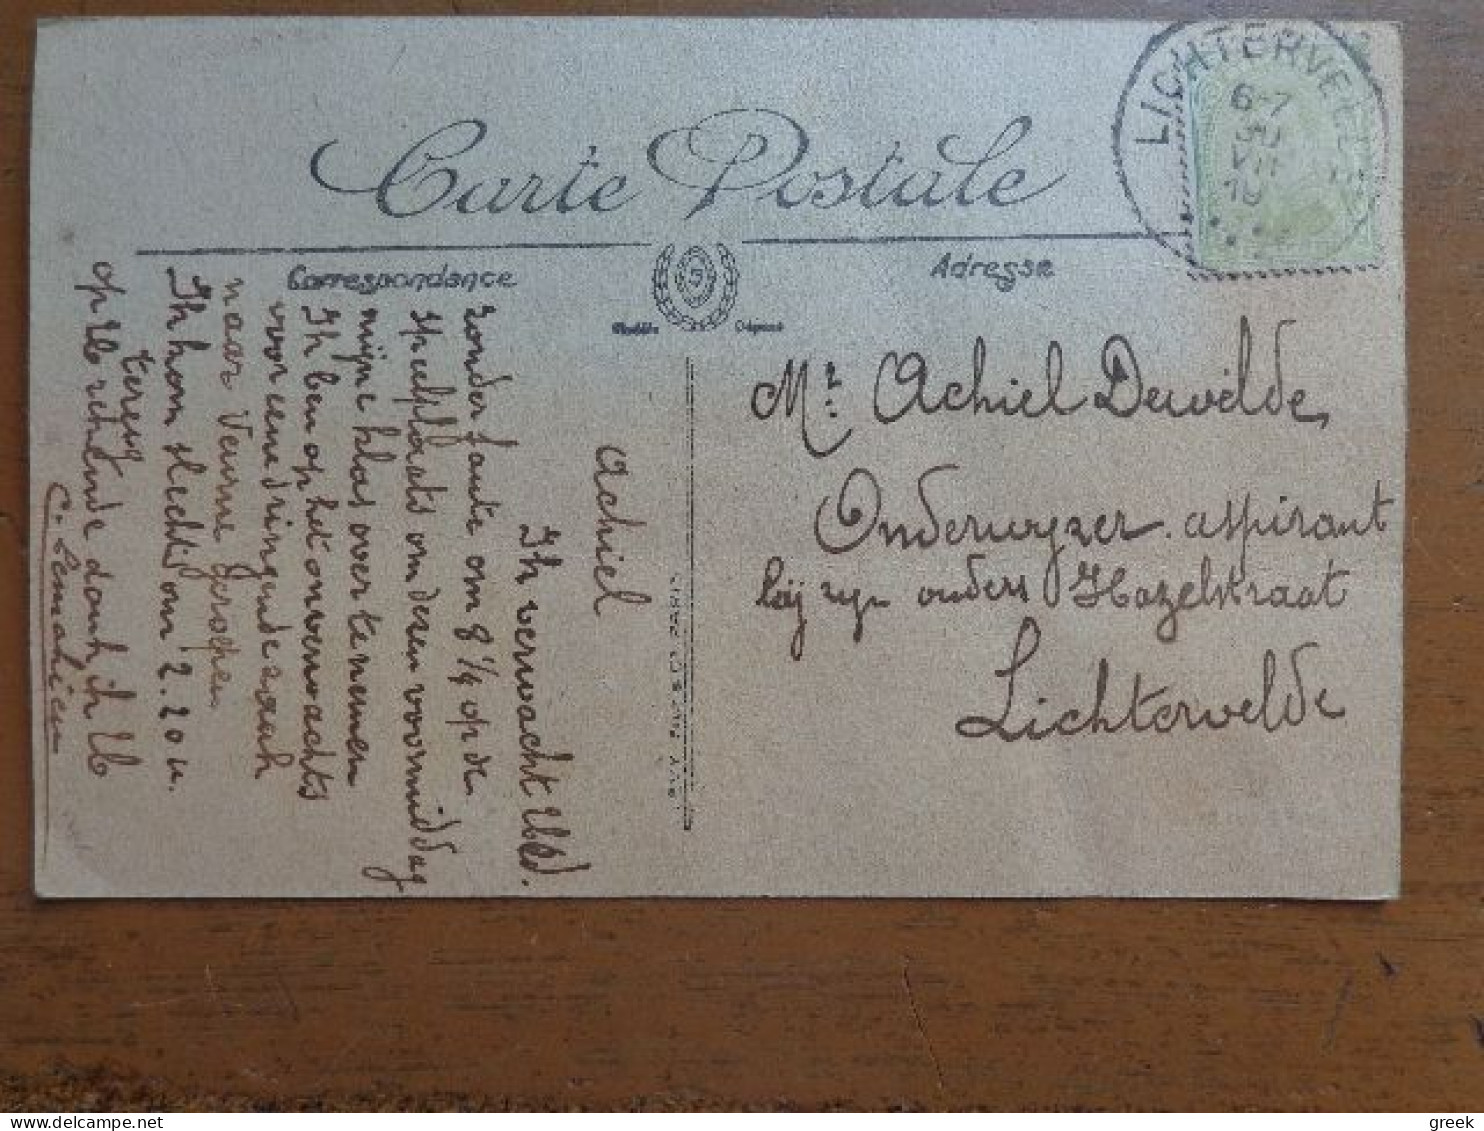 Carte Postale
Correspondance
Adresse
LICHTERVELDE
6-7
VII
10
Mr. Achiel Dewilde,
Onderwyzer. aspirant
bij zyn ouders Hazelstraat
Lichtervelde
Achiel
Ik verwacht UEd.
zonder faute om 8 1/4 op de
speelplaats om dezen voormiddag
mijne klas over te nemen
Ik ben op het onverwachts
voor eene dringende zaak
naar Veurne geroepen
Ik kom slechts om 2.20 u.
terug
op U rekenende dank ik U
greek